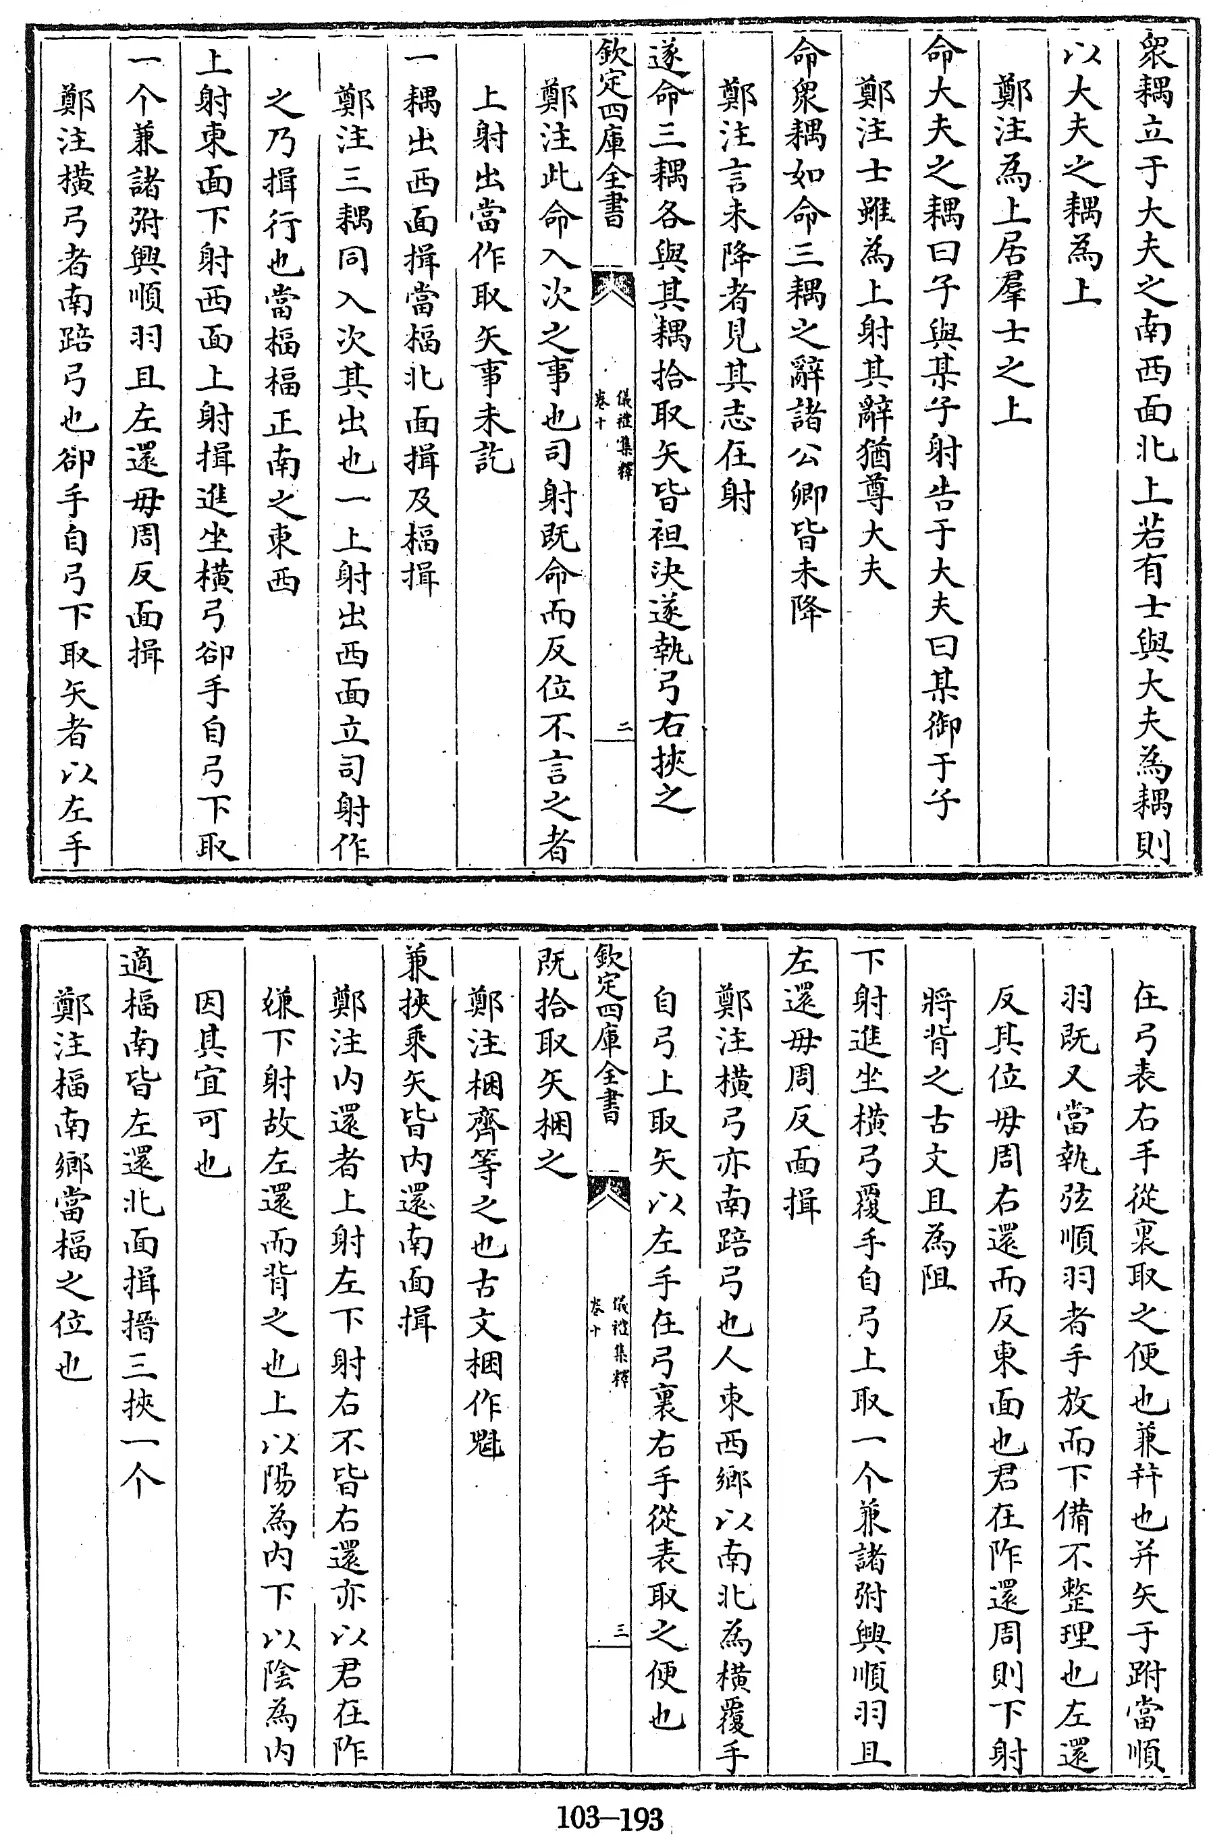 衆耦立于大夫之南西面北上若有士與大夫為耦則
以大夫之耦為上
鄭注為上居羣士之上
命大夫之耦曰子與某子射告于大夫曰某御于子
鄭注士雖為上射其辭猶尊大夫
命衆耦如命三耦之辭諸公卿皆未降
鄭注言未降者見其志在射
遂命三耦各與其耦拾取矢皆袒決遂執弓右挾之
欽定四庫全書
儀禮集釋
卷十
二
鄭注此命入次之事也司射既命而反位不言之者
上射出當作取矢事未訖
一耦出西面揖當楅北面揖及楅揖
鄭注三耦同入次其出也一上射出西面立司射作
之乃揖行也當楅楅正南之東西
上射東面下射西面上射揖進坐橫弓卻手自弓下取
一个兼諸弣興順羽且左還毋周反面揖
鄭注橫弓者南踣弓也卻手自弓下取矢者以左手
在弓表右手從裏取之便也兼幷也并矢于跗當順
羽既又當執弦順羽者手放而下備不整理也左還
反其位毋周右還而反東面也君在阼還周則下射
將背之古文且為阻
下射進坐橫弓覆手自弓上取一个兼諸弣興順羽且
左還毋周反面揖
鄭注橫弓亦南踣弓也人東西鄉以南北為橫覆手
自弓上取矢以左手在弓裏右手從表取之便也
欽定四庫全書
儀禮集釋
卷十
三
既拾取矢梱之
鄭注梱齊等之也古文梱作魁
兼挾乘矢皆内還南面揖
鄭注内還者上射左下射右不皆右還亦以君在阼
嫌下射故左還而背之也上以陽為内下以陰為内
因其宜可也
適楅南皆左還北面揖搢三挾一个
鄭注楅南鄉當楅之位也
103-193